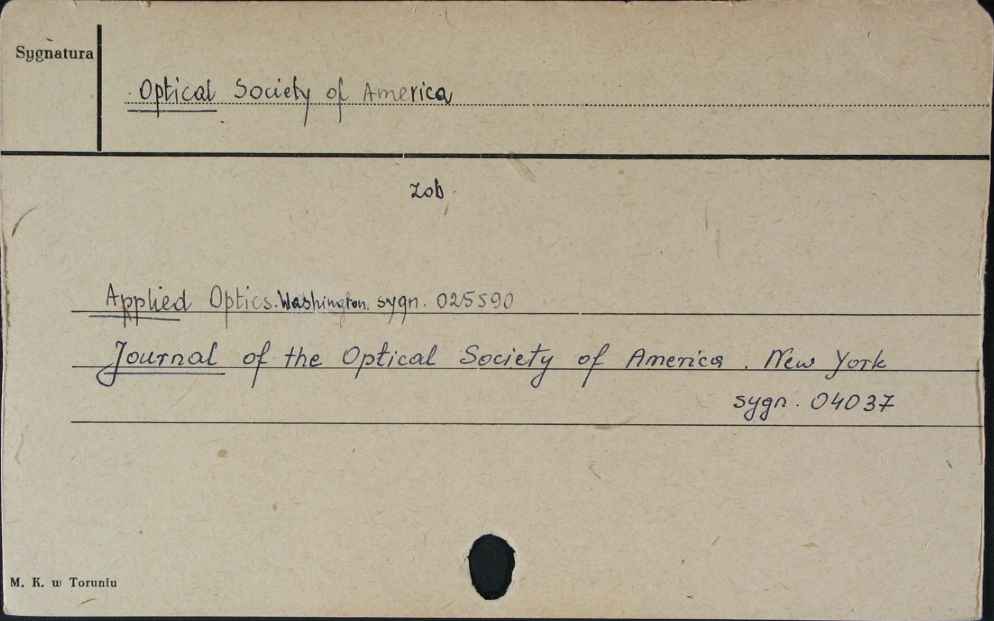 Sygnatura
Optical Society of America
zob.
Applied Optics. Washington. sygn. 025590
Journal of the Optical Society of America. New York
sygn. 04037
M. K. w Toruniu